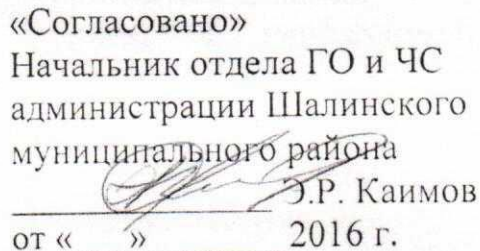 «Согласовано»
Начальник отдела ГО и ЧС
администрации Шалинского
муниципального района
____________ Э.Р. Каимов
от «      » ________ 2016 г.